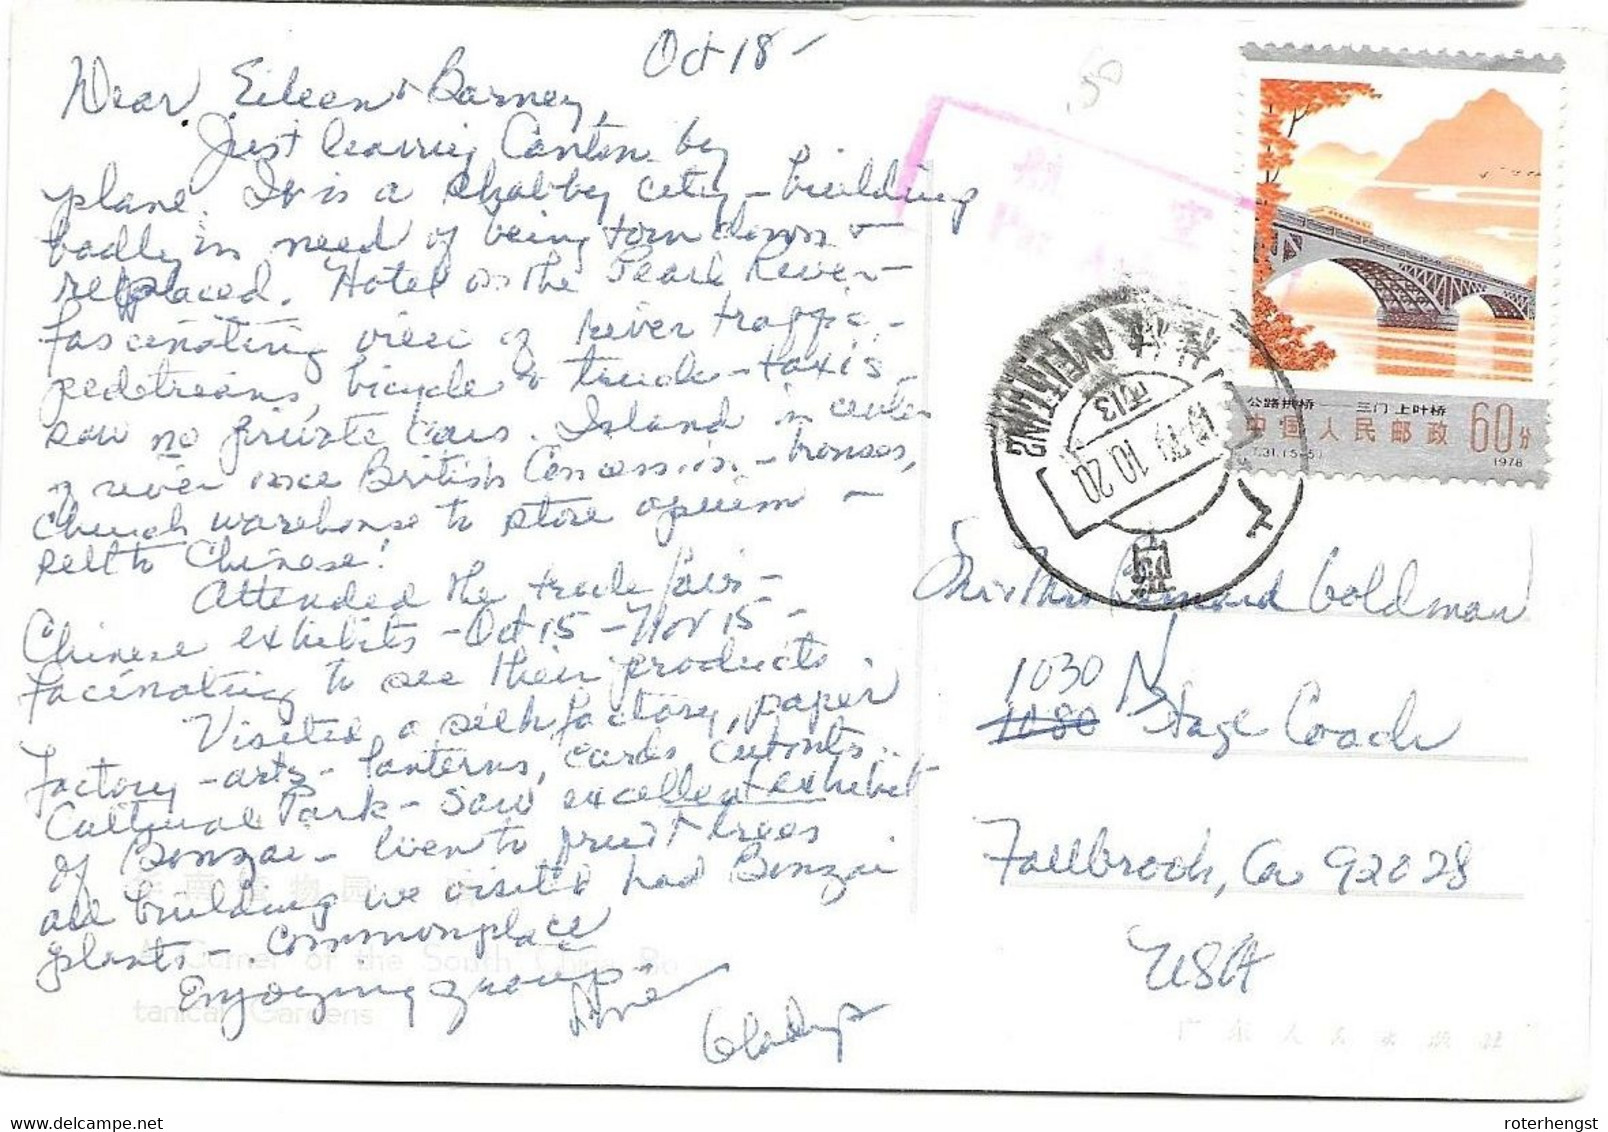 Oct 18 –
Dear Eileen & Barney,
Just leaving Canton by
plane. It is a shabby city – building
badly in need of being torn down &
replaced. Hotel on the Pearl River –
fascinating view of river traffic –
pedetrians, bicycle & truck – taxis –
saw no private cars. Island in center
of river once British Concession – houses,
church warehouse to store opium –
sell to Chinese!
Attended the trade fair –
Chinese exhibits – Oct 15 – Nov 15 –
facinating to see their products.
Visited a silk factory, paper
factory – arts – lanterns, cards, cutouts..
Cultural Park – saw excellent exhibit
of Bonzai – liven to fruit trees
all building we visited had Bonzai
plants – commonplace
Enjoying group –
Love
Gladys
华南植物园
A Corner of the South China Bo-
tanical Gardens
.50
航 空
Par
公路拱桥——三门上叶桥
中国人民邮政 60分
T.31.(5-5) 1978
上海
1979.10.20
丙13
SHANGHAI
Mr & Mrs Bernard Goldman
1030 N Stage Coach
1080
Fallbrook, Ca 92028
USA
广东人民出版社
delcampe.net
roterhengst